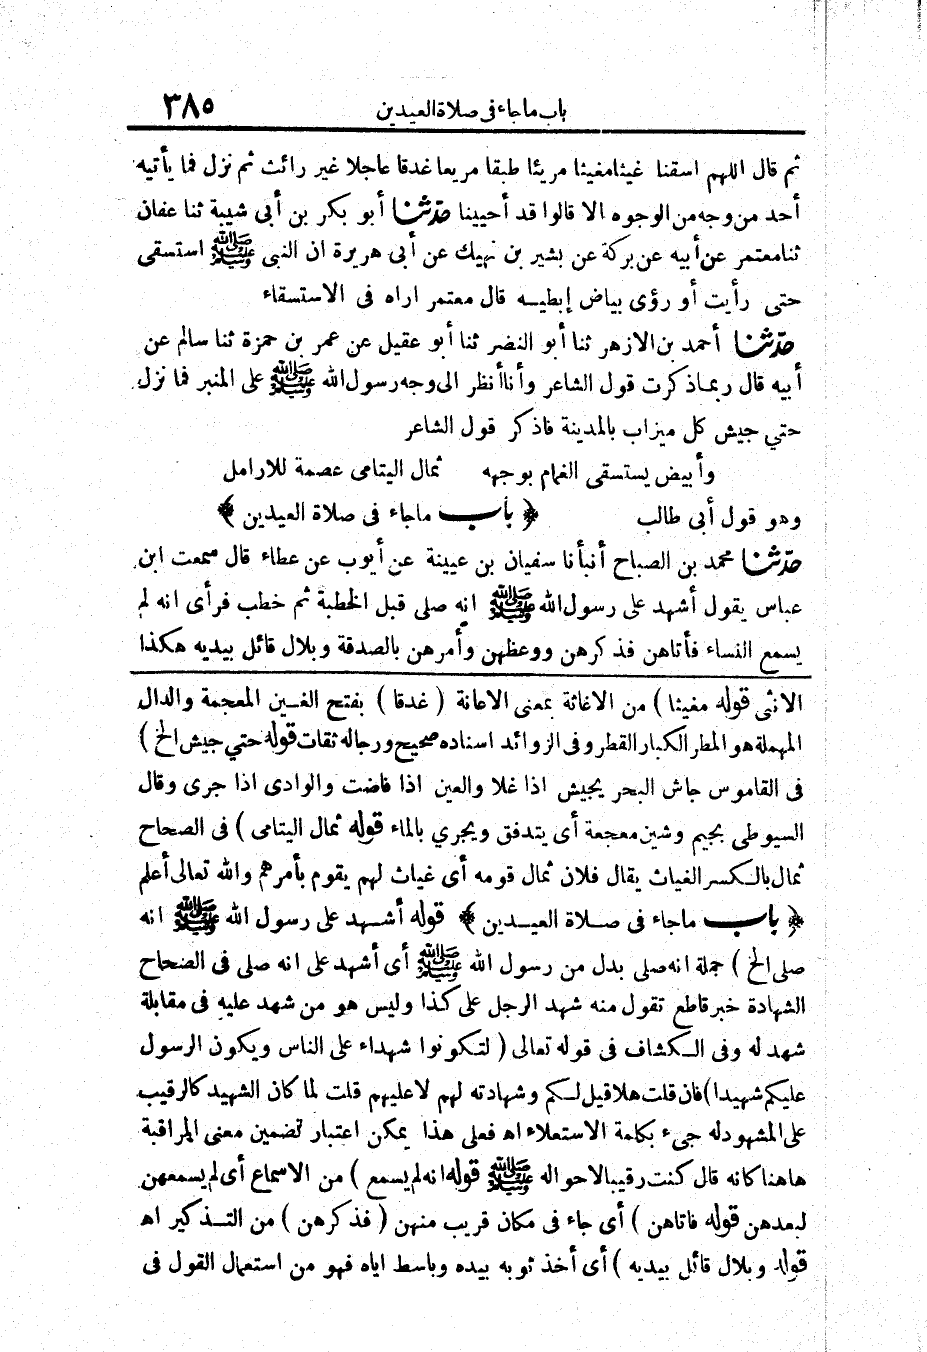 باب ماجاء فى صلاة العيدين ٣٨٥
ثم قال اللهم اسقنا غيثا مغيثا مريئا طبقا مريعا غدقا عاجلا غير رائث ثم نزل فما يأتيه
أحد من وجه من الوجوه الا قالوا قد أحيينا حدّثنا أبو بكر بن أبى شيبة ثنا عفان
ثنا معتمر عن أبيه عن بركة عن بشير بن نهيك عن أبى هريرة ان النبى ﷺ استسقى
حتى رأيت أو رؤى بياض إبطيـه قال معتمر اراه فى الاستسقاء
حدّثنا أحمد بن الازهر ثنا أبو النضر ثنا أبو عقيل عن عمر بن حمزة ثنا سالم عن
أبيه قال ربما ذكرت قول الشاعر وأنا أنظر الى وجه رسول الله ﷺ على المنبر فما نزل
حتي جيش كل ميزاب بالمدينة فاذكر قول الشاعر
وأبيض يستسقى الغمام بوجهه ثمال اليتامى عصمة للارامل
وهو قول أبى طالب ﴿ بأب ماجاء فى صلاة العيدين ﴾
حدّثنا محمد بن الصباح أنبأنا سفيان بن عيينة عن أيوب عن عطاء قال سمعت ابن
عباس يقول أشهد على رسول الله ﷺ انه صلى قبل الخطبة ثم خطب فرأى انه لم
يسمع النساء فأتاهن فذكرهن ووعظهن وأمرهن بالصدقة وبلال قائل بيديه هكذا
الانثى قوله مغيثا ) من الاغاثة بمعنى الاعانة ( غدقا ) بفتح الغـين المعجمة والدال
المهملة هو المطر الكبار القطر وفى الزوائد اسناده صحيح ورجاله ثقات قوله حتي جيش الخ )
فى القاموس جاش البحر يجيش اذا غلا والعين اذا فاضت والوادى اذا جرى وقال
السيوطى بجيم وشين معجمة أى يتدفق ويجري بالماء قوله ثمال اليتامى ) فى الصحاح
ثمال بالـكسر الغياث يقال فلان ثمال قومه أى غياث لهم يقوم بأمرهم والله تعالى أعلم
﴿ باب ماجاء فى صـلاة العيـدين ﴾ قوله أشـهد على رسول الله ﷺ انه
صلى الخ ) جملة انه صلى بدل من رسول الله ﷺ أى أشهد على انه صلى فى الصحاح
الشهادة خبر قاطع تقول منه شهد الرجل على كذا وليس هو من شهد عليه فى مقابلة
شهد له وفى الـكشاف فى قوله تعالى ( لتـكونوا شهداء على الناس ويكون الرسول
عليكم شهيدا ) فان قلت هلا قيل لـكم وشهادته لهم لا عليهم قلت لما كان الشهيد كالرقيب
على المشهود له جىء بكلمة الاستعلاء اه فعلى هذا يمكن اعتبار تضمين معنى المراقبة
هاهنا كانه قال كنت رقيبا لاحواله ﷺ قوله انه لم يسمع ) من الاسماع أى لم يسمعهن
لبعدهن قوله فاتاهن ) أى جاء فى مكان قريب منهن ( فذكرهن ) من التـذكير اه
قوله وبلال قائل بيديه ) أى أخذ ثوبه بيده وباسط اياه فهو من استعمال القول فى